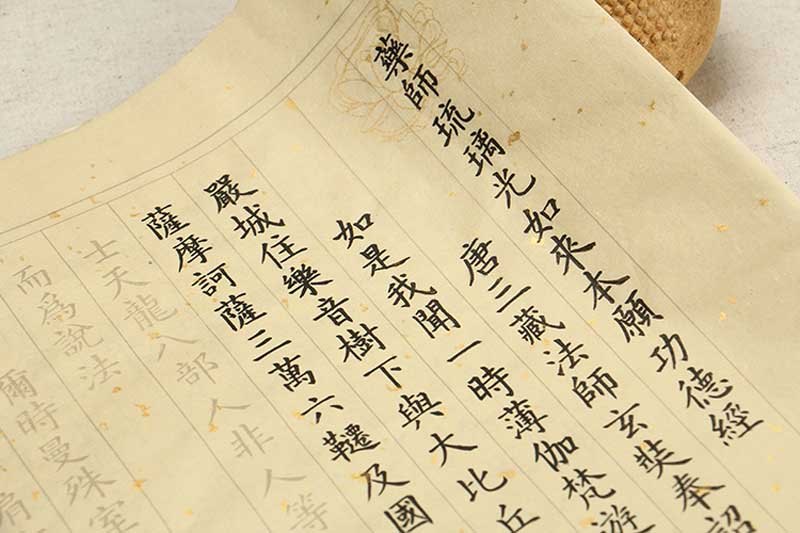 藥師琉璃光如來本願功德經
唐三藏法師玄奘奉詔
如是我聞一時薄伽梵遊
嚴城住樂音樹下與大比丘
薩摩訶薩三萬六韆及國
士天龍八部人非人等
而爲說法
爾時曼殊室
肩